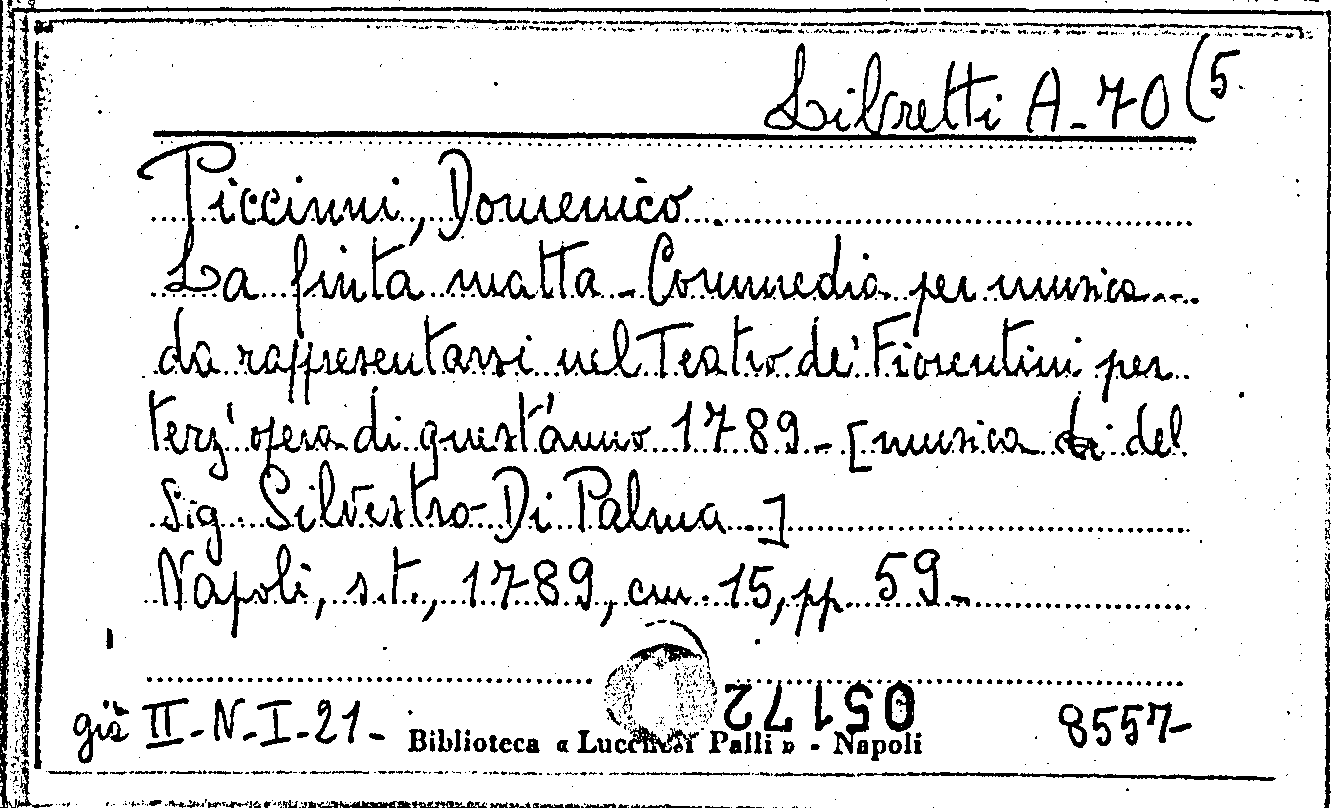 Libretti A-70(5.
Piccinni, Domenico.
La finta matta - Commedia per musica...
da rappresentarsi nel Teatro de' Fiorentini per
terz'opera di quest'anno 1789 - [musica del
Sig. Silvestro Di Palma.]
Napoli, s.t., 1789, cm. 15, pp. 59-
05172
già II-N-I-21-
8557-
Biblioteca « Lucchesi Palli » - Napoli